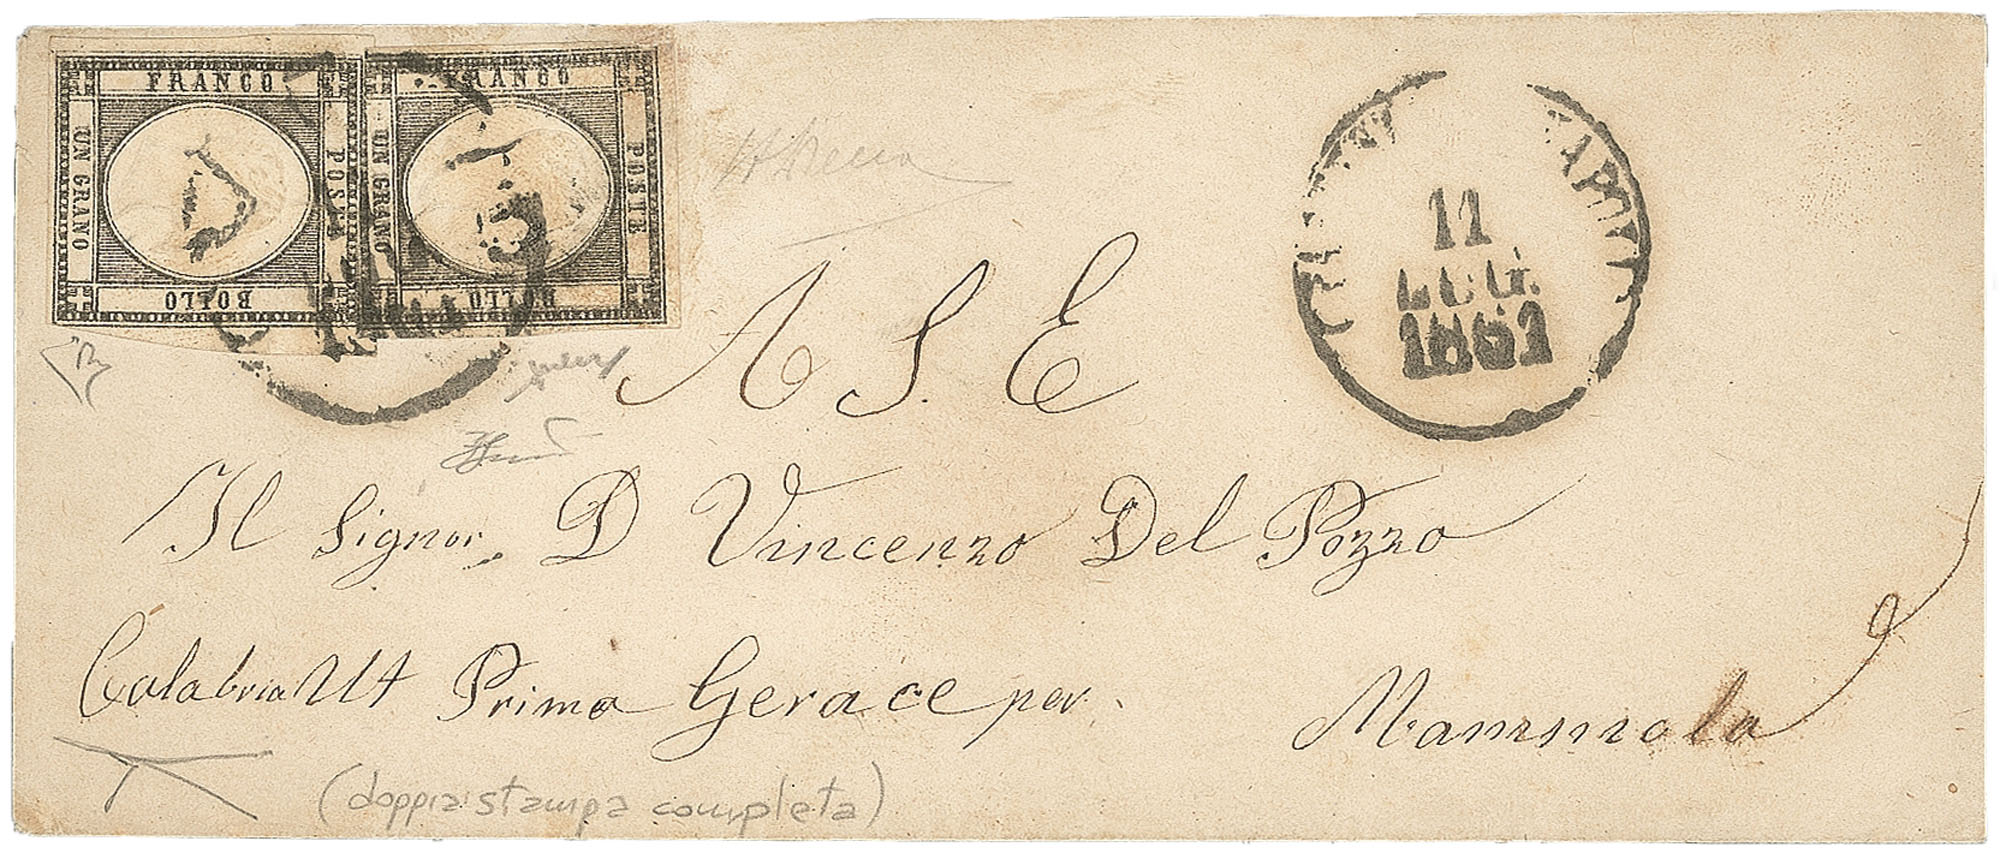 FRANCO
UN GRANO
POSTA
BOLLO
FRANCO
UN GRANO
POSTE
BOLLO
11
LUG.
1861
A S. E
Il Signor D Vincenzo Del Pozzo
Calabria Ult Prima Gerace per
Mammola
(doppia stampa completa)